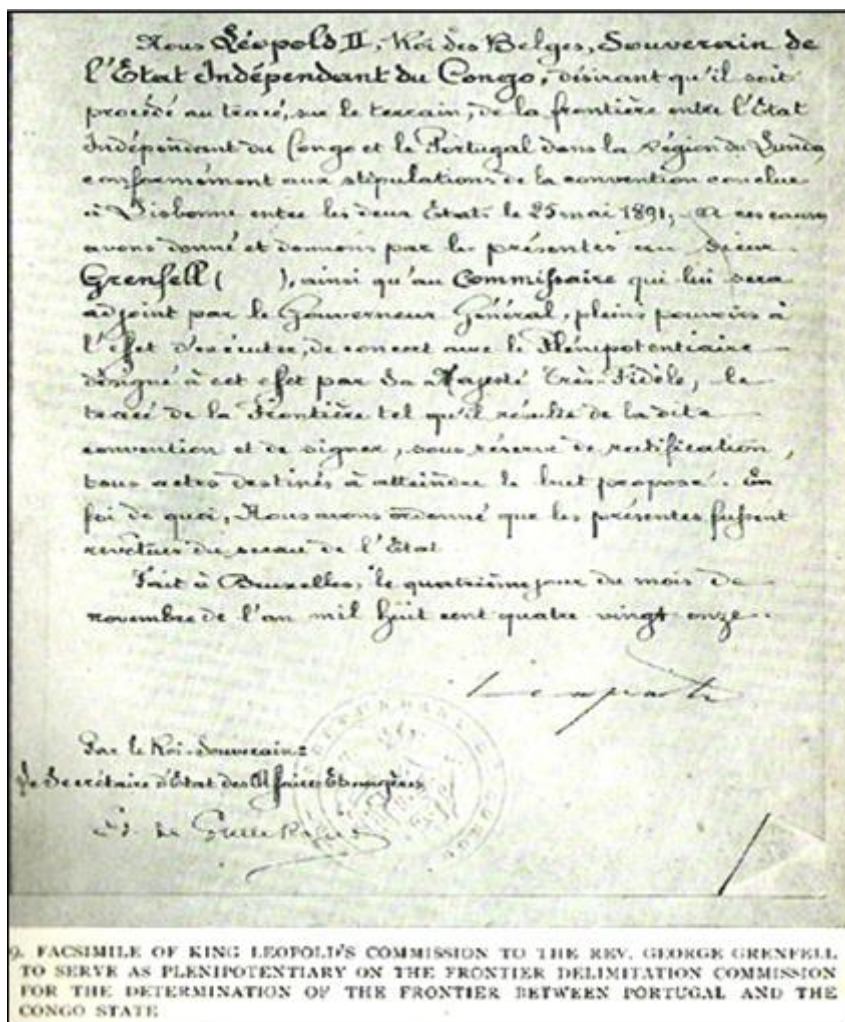 Nous Léopold II, Roi des Belges, Souverain de
l'État Indépendant du Congo, désirant qu'il soit
procédé au tracé, sur le terrain, de la frontière entre l'État
Indépendant du Congo et le Portugal dans la région du Lunda,
conformément aux stipulations de la convention conclue
à Lisbonne entre les deux États le 25 mai 1891,
avons donné et donnons par les présentes au Sieur
Grenfell ( ), ainsi qu'au Commissaire qui lui sera
adjoint par le Gouverneur Général, pleins pouvoirs à
l'effet d'exécuter, de concert avec le Plénipotentiaire
désigné à cet effet par Sa Majesté Très-Fidèle, le
tracé de la Frontière tel qu'il résulte de la dite
convention et de signer, sous réserve de ratification,
tous actes destinés à atteindre le but proposé. En
foi de quoi, Nous avons ordonné que les présentes fussent
revêtues du sceau de l'État.
Fait à Bruxelles, le quatrième jour du mois de
novembre de l'an mil huit cent quatre vingt onze.
Léopold
Par le Roi-Souverain:
Le Secrétaire d'État des Affaires Étrangères
Ed. de Grelle
9. FACSIMILE OF KING LEOPOLD'S COMMISSION TO THE REV. GEORGE GRENFELL
TO SERVE AS PLENIPOTENTIARY ON THE FRONTIER DELIMITATION COMMISSION
FOR THE DETERMINATION OF THE FRONTIER BETWEEN PORTUGAL AND THE
CONGO STATE